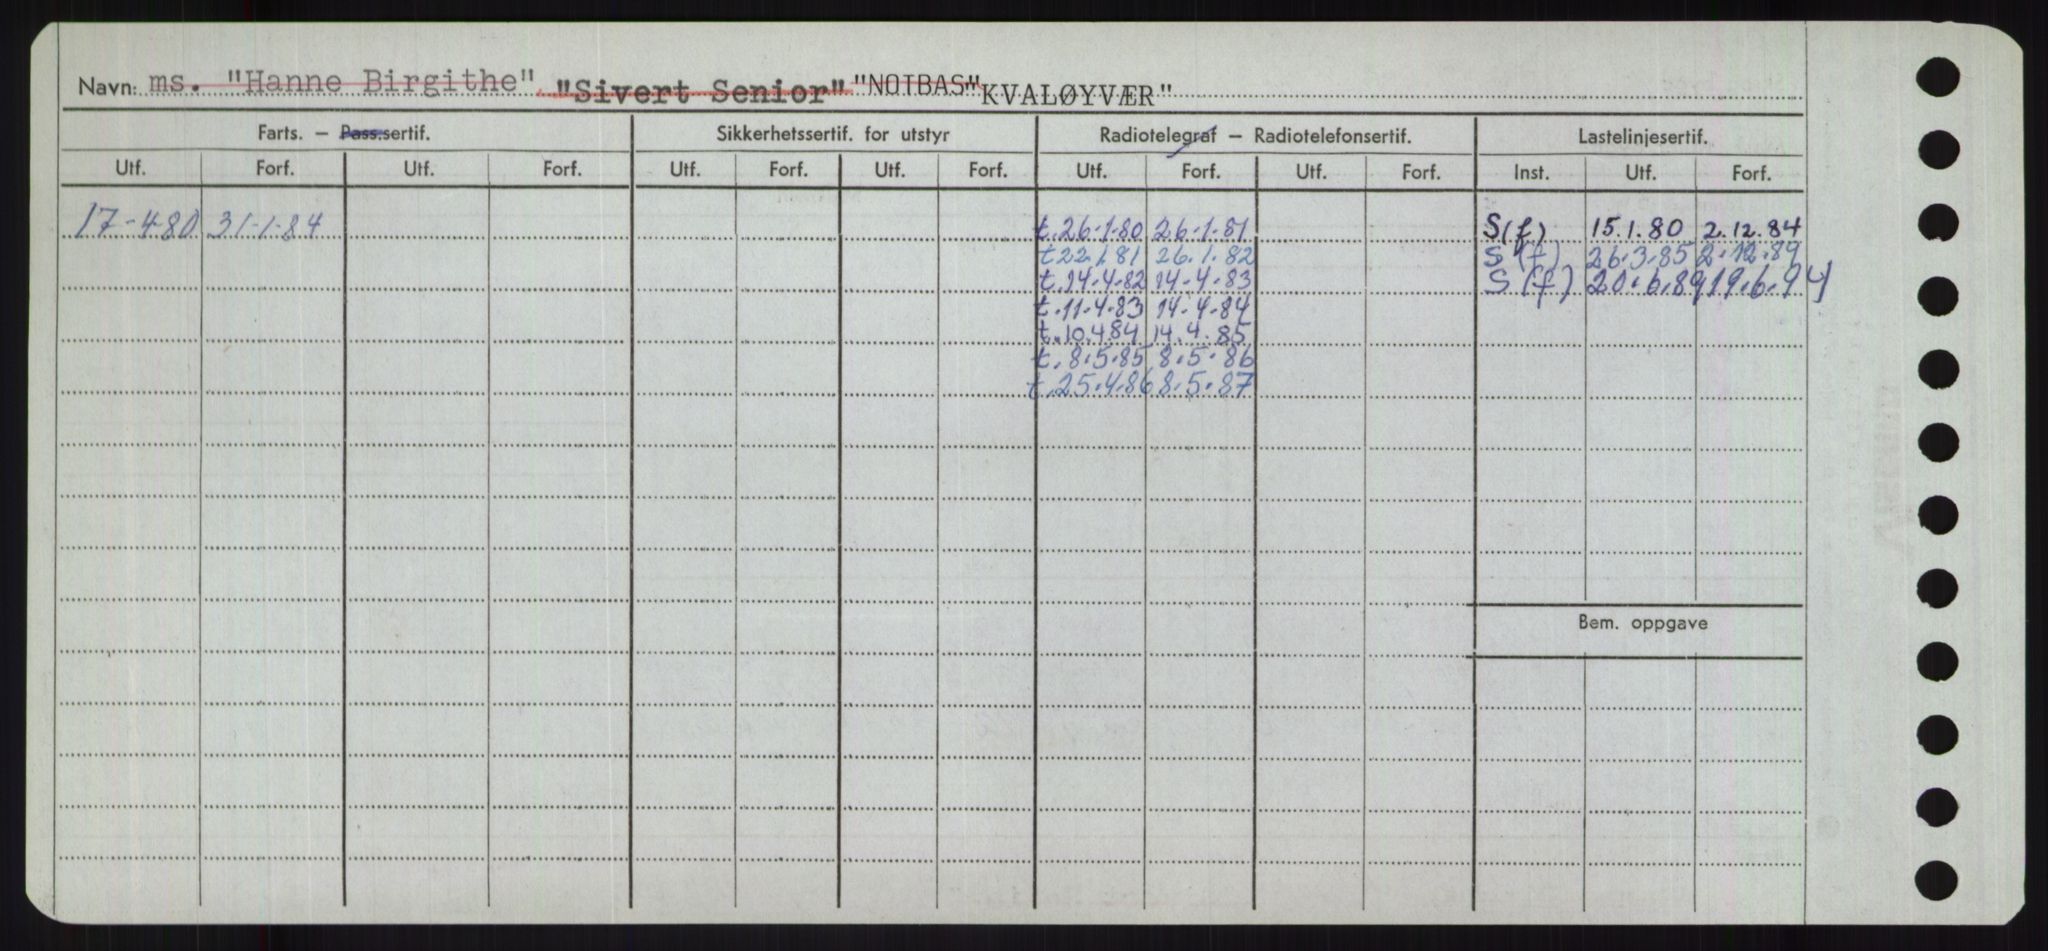 Navn: ms. "Hanne Birgithe" "Sivert Senior" "NOTBAS" "KVALØYVÆR"
Farts. — Pass.sertif. Sikkerhetssertif. for utstyr Radiotelegraf — Radiotelefonsertif. Lastelinjesertif.
Utf. Forf. Utf. Forf. Utf. Forf. Utf. Forf. Utf. Forf. Utf. Forf. Inst. Utf. Forf.
17-4-80 31-1-84 t.26.1.80 26.1.81 S(f) 15.1.80 2.12.84
t.22.1.81 26.1.82 S(f) 26.3.85 2.12.89
t.14.4.82 14.4.83 S(f) 20.6.89 19.6.94
t.11.4.83 14.4.84
t.10.4.84 14.4.85
t.8.5.85 8.5.86
t.25.4.86 8.5.87
Bem. oppgave